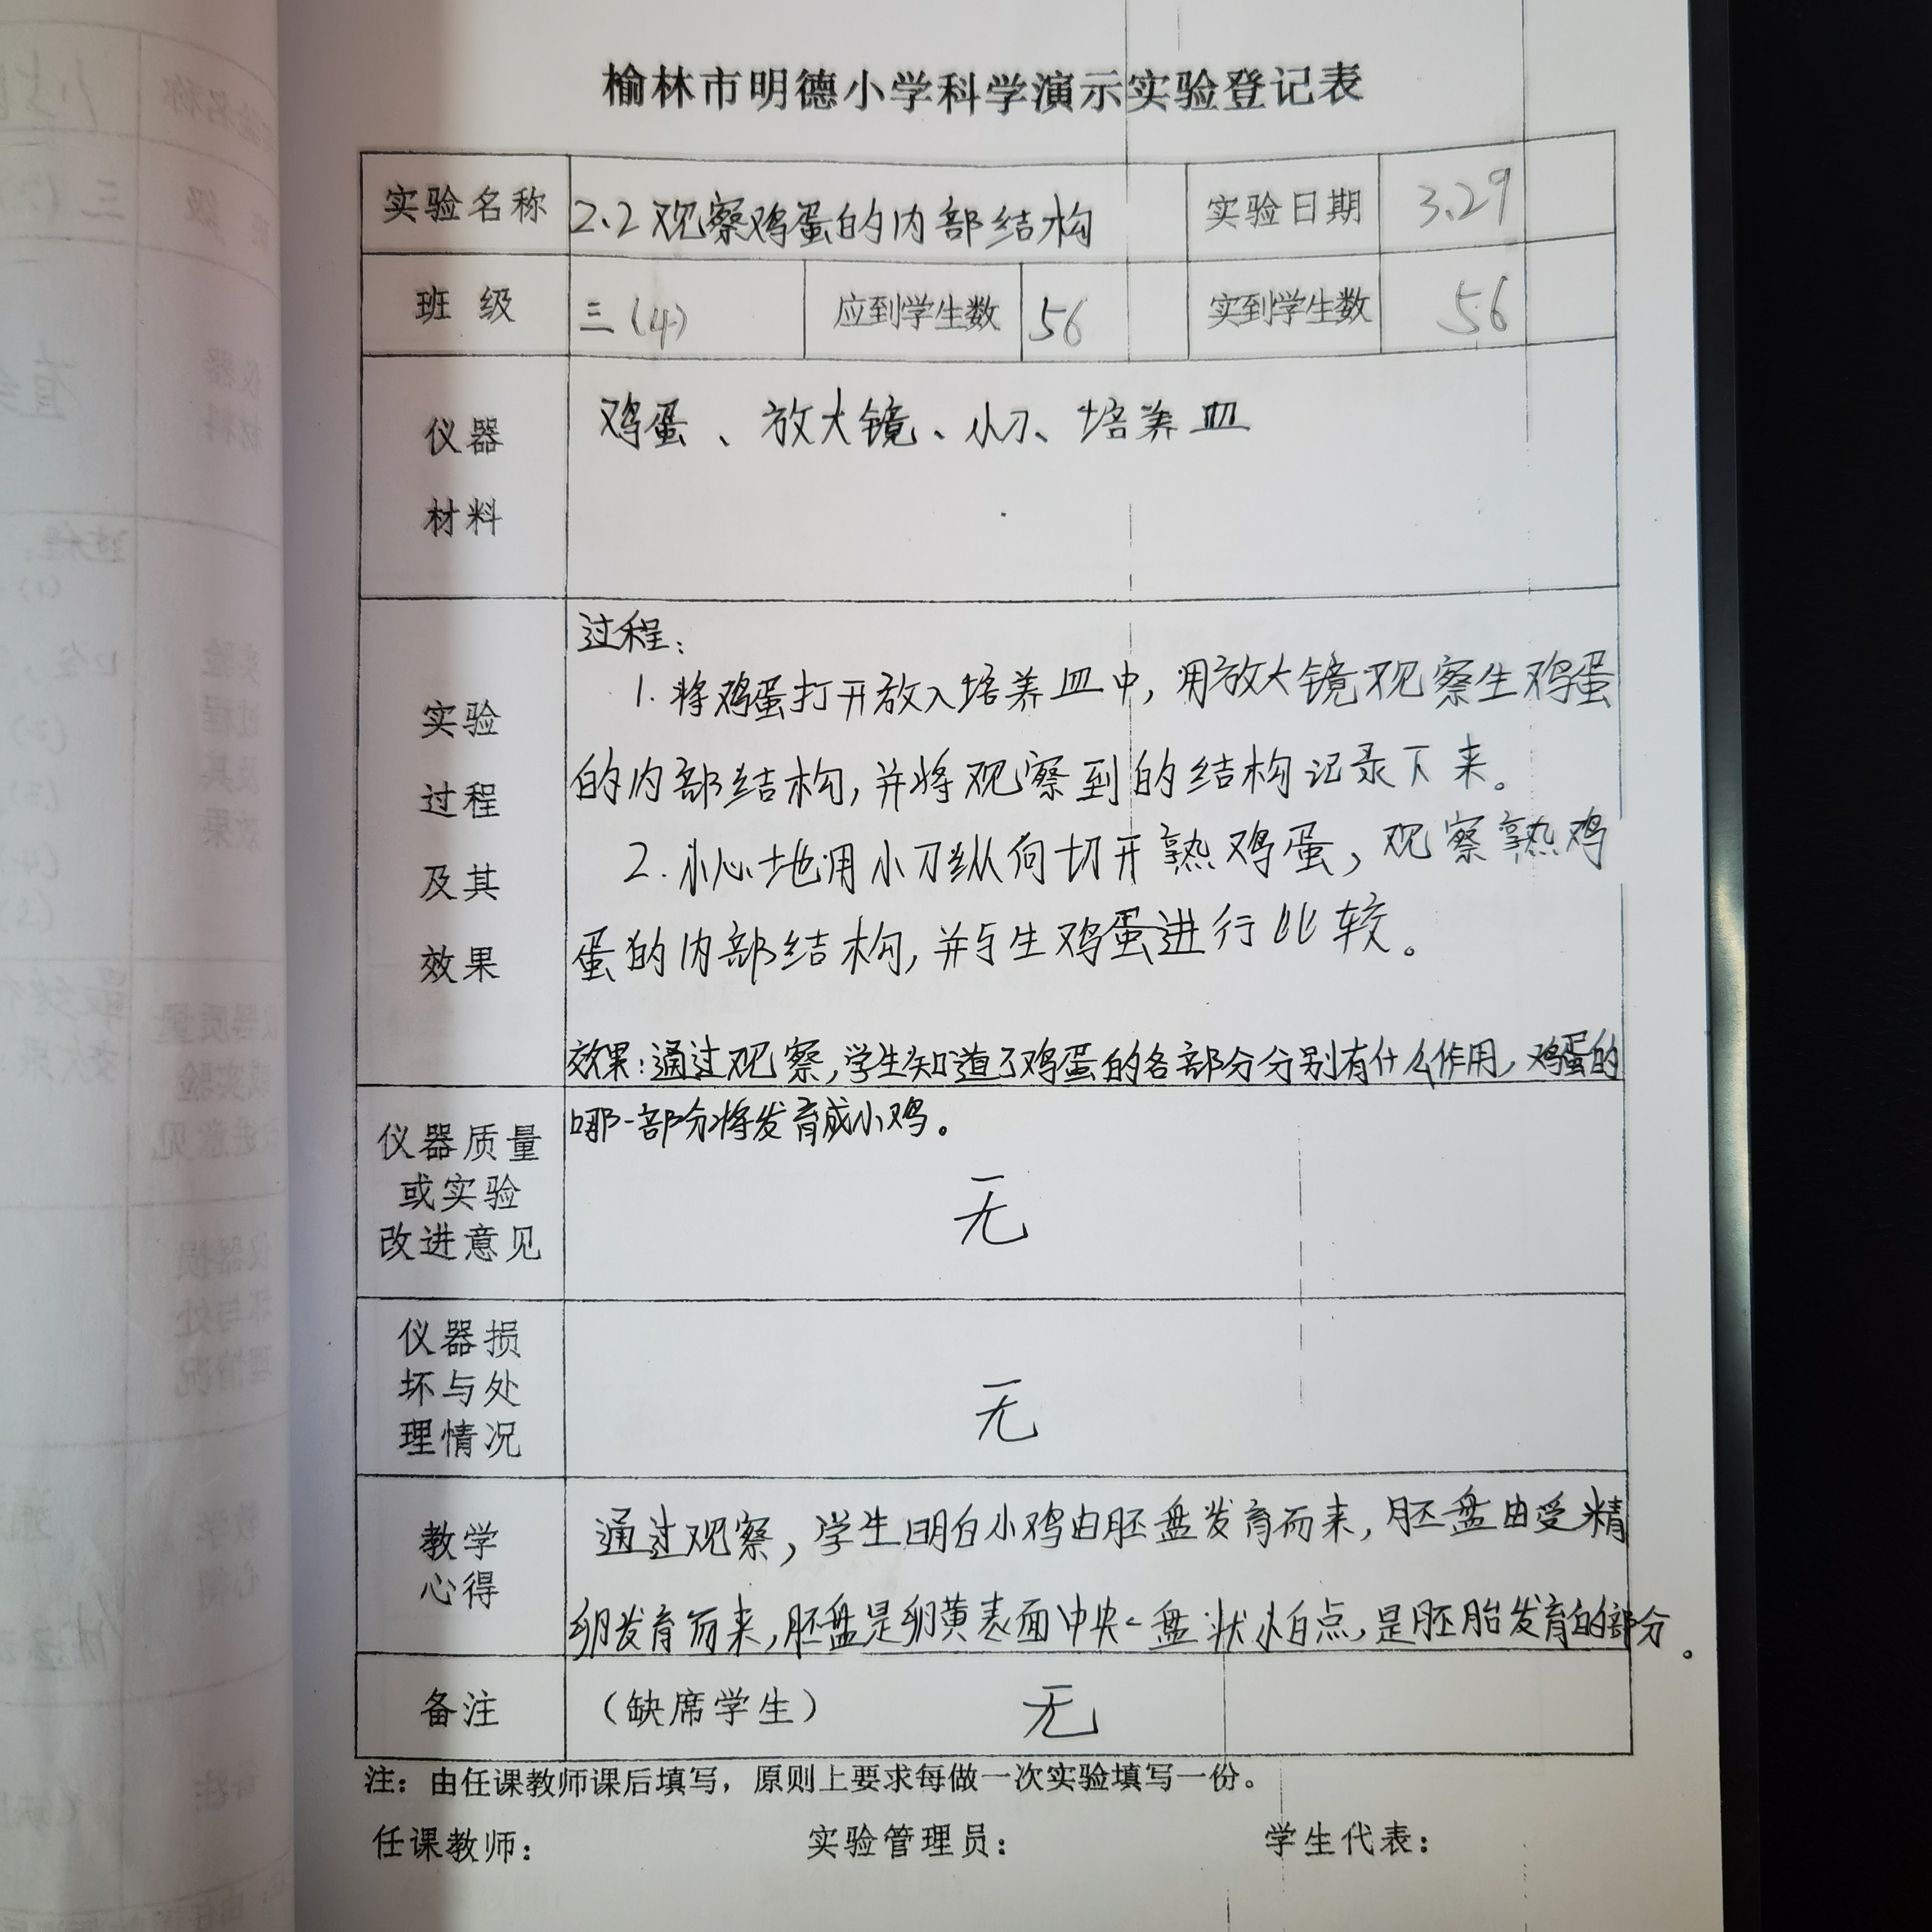 榆林市明德小学科学演示实验登记表
实验名称 2.2观察鸡蛋的内部结构 实验日期 3.29
班 级 三(4) 应到学生数 56 实到学生数 56
仪器
材料
鸡蛋、放大镜、小刀、培养皿
实验
过程
及其
效果
过程:
1.将鸡蛋打开放入培养皿中,用放大镜观察生鸡蛋
的内部结构,并将观察到的结构记录下来。
2.小心地用小刀纵向切开熟鸡蛋,观察熟鸡
蛋的内部结构,并与生鸡蛋进行比较。
效果:通过观察,学生知道了鸡蛋的各部分分别有什么作用,鸡蛋的
哪一部分将发育成小鸡。
仪器质量
或实验
改进意见
无
仪器损
坏与处
理情况
无
教学
心得
通过观察,学生明白小鸡由胚盘发育而来,胚盘由受精
卵发育而来,胚盘是卵黄表面中央一盘状小白点,是胚胎发育的部分。
备注 (缺席学生) 无
注:由任课教师课后填写,原则上要求每做一次实验填写一份。
任课教师: 实验管理员: 学生代表: